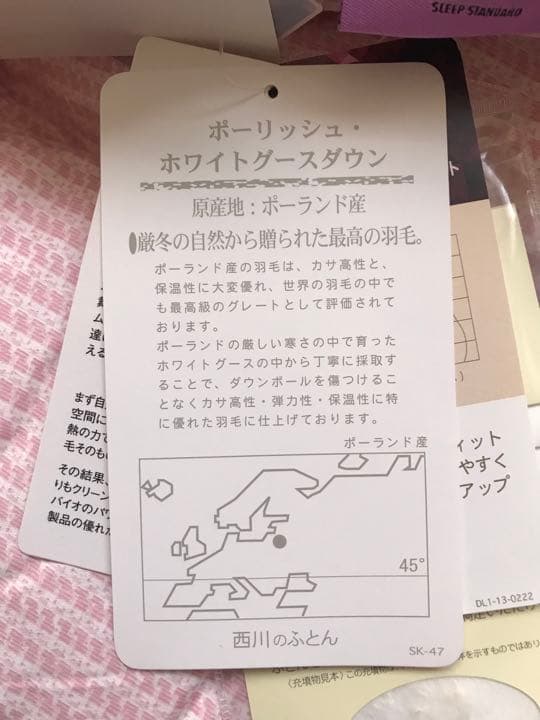 SLEEP STANDARD
ポーリッシュ・
ホワイトグースダウン
原産地：ポーランド産
厳冬の自然から贈られた最高の羽毛。
ポーランド産の羽毛は、カサ高性と、
保温性に大変優れ、世界の羽毛の中で
も最高級のグレートとして評価されて
おります。
ポーランドの厳しい寒さの中で育った
ホワイトグースの中から丁寧に採取す
ることで、ダウンボールを傷つけるこ
となくカサ高性・弾力性・保温性に特
に優れた羽毛に仕上げております。
ポーランド産
45°
西川のふとん
SK-47
ム
達
える
まず自
空間に
熱の力で
毛そのも
その結果、
りもクリーン
バイオのパワ
製品の優れた
ト
ィット
やすく
アップ
DL1-13-0222
を示すものではあり
(充填物見本)この充填物